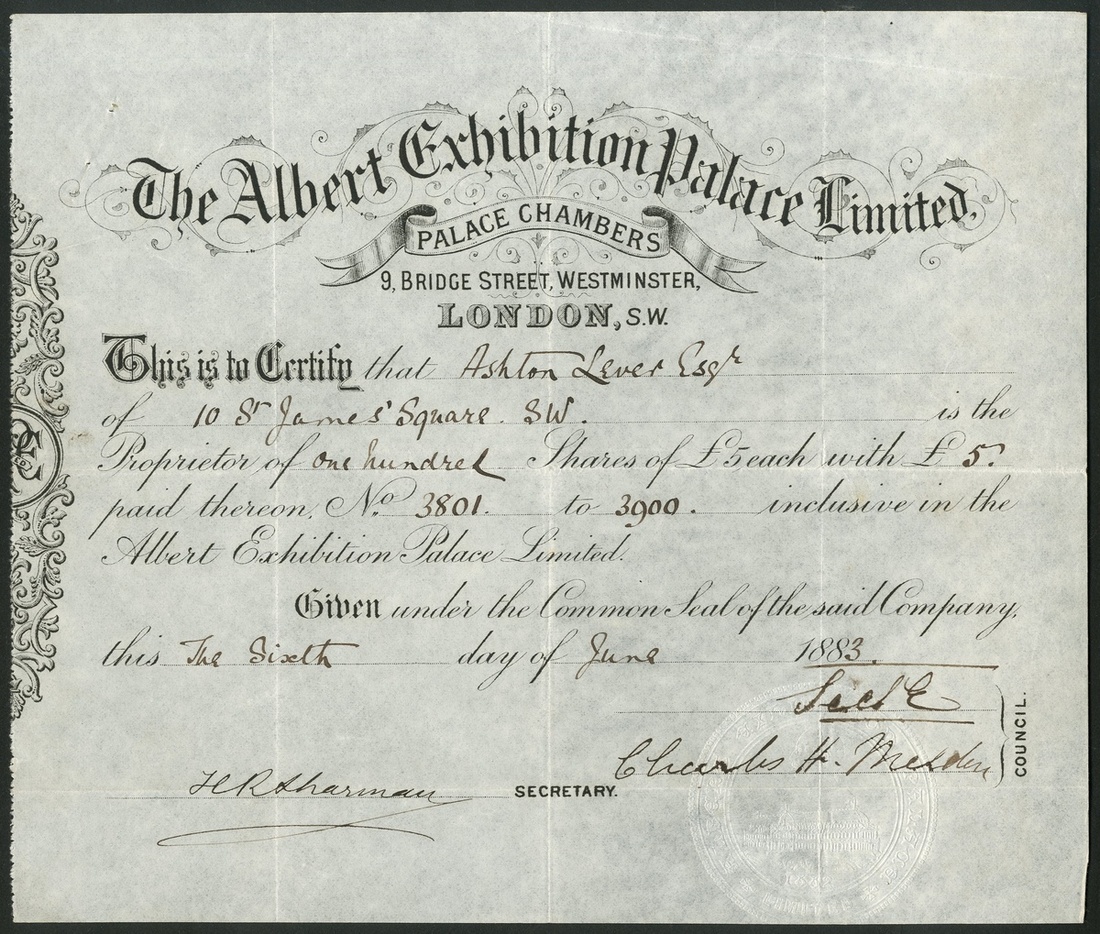 The Albert Exhibition Palace Limited,
PALACE CHAMBERS
9, BRIDGE STREET, WESTMINSTER,
LONDON, S.W.
This is to Certify that Ashton Lever Esqr
of 10 St James' Square. SW. is the
Proprietor of one hundred Shares of £5 each with £ 5.
paid thereon, No. 3801. to 3900. inclusive in the
Albert Exhibition Palace Limited.
Given under the Common Seal of the said Company,
this The Sixth day of June 1883.
Charles H.
COUNCIL.
H R Sharman SECRETARY.